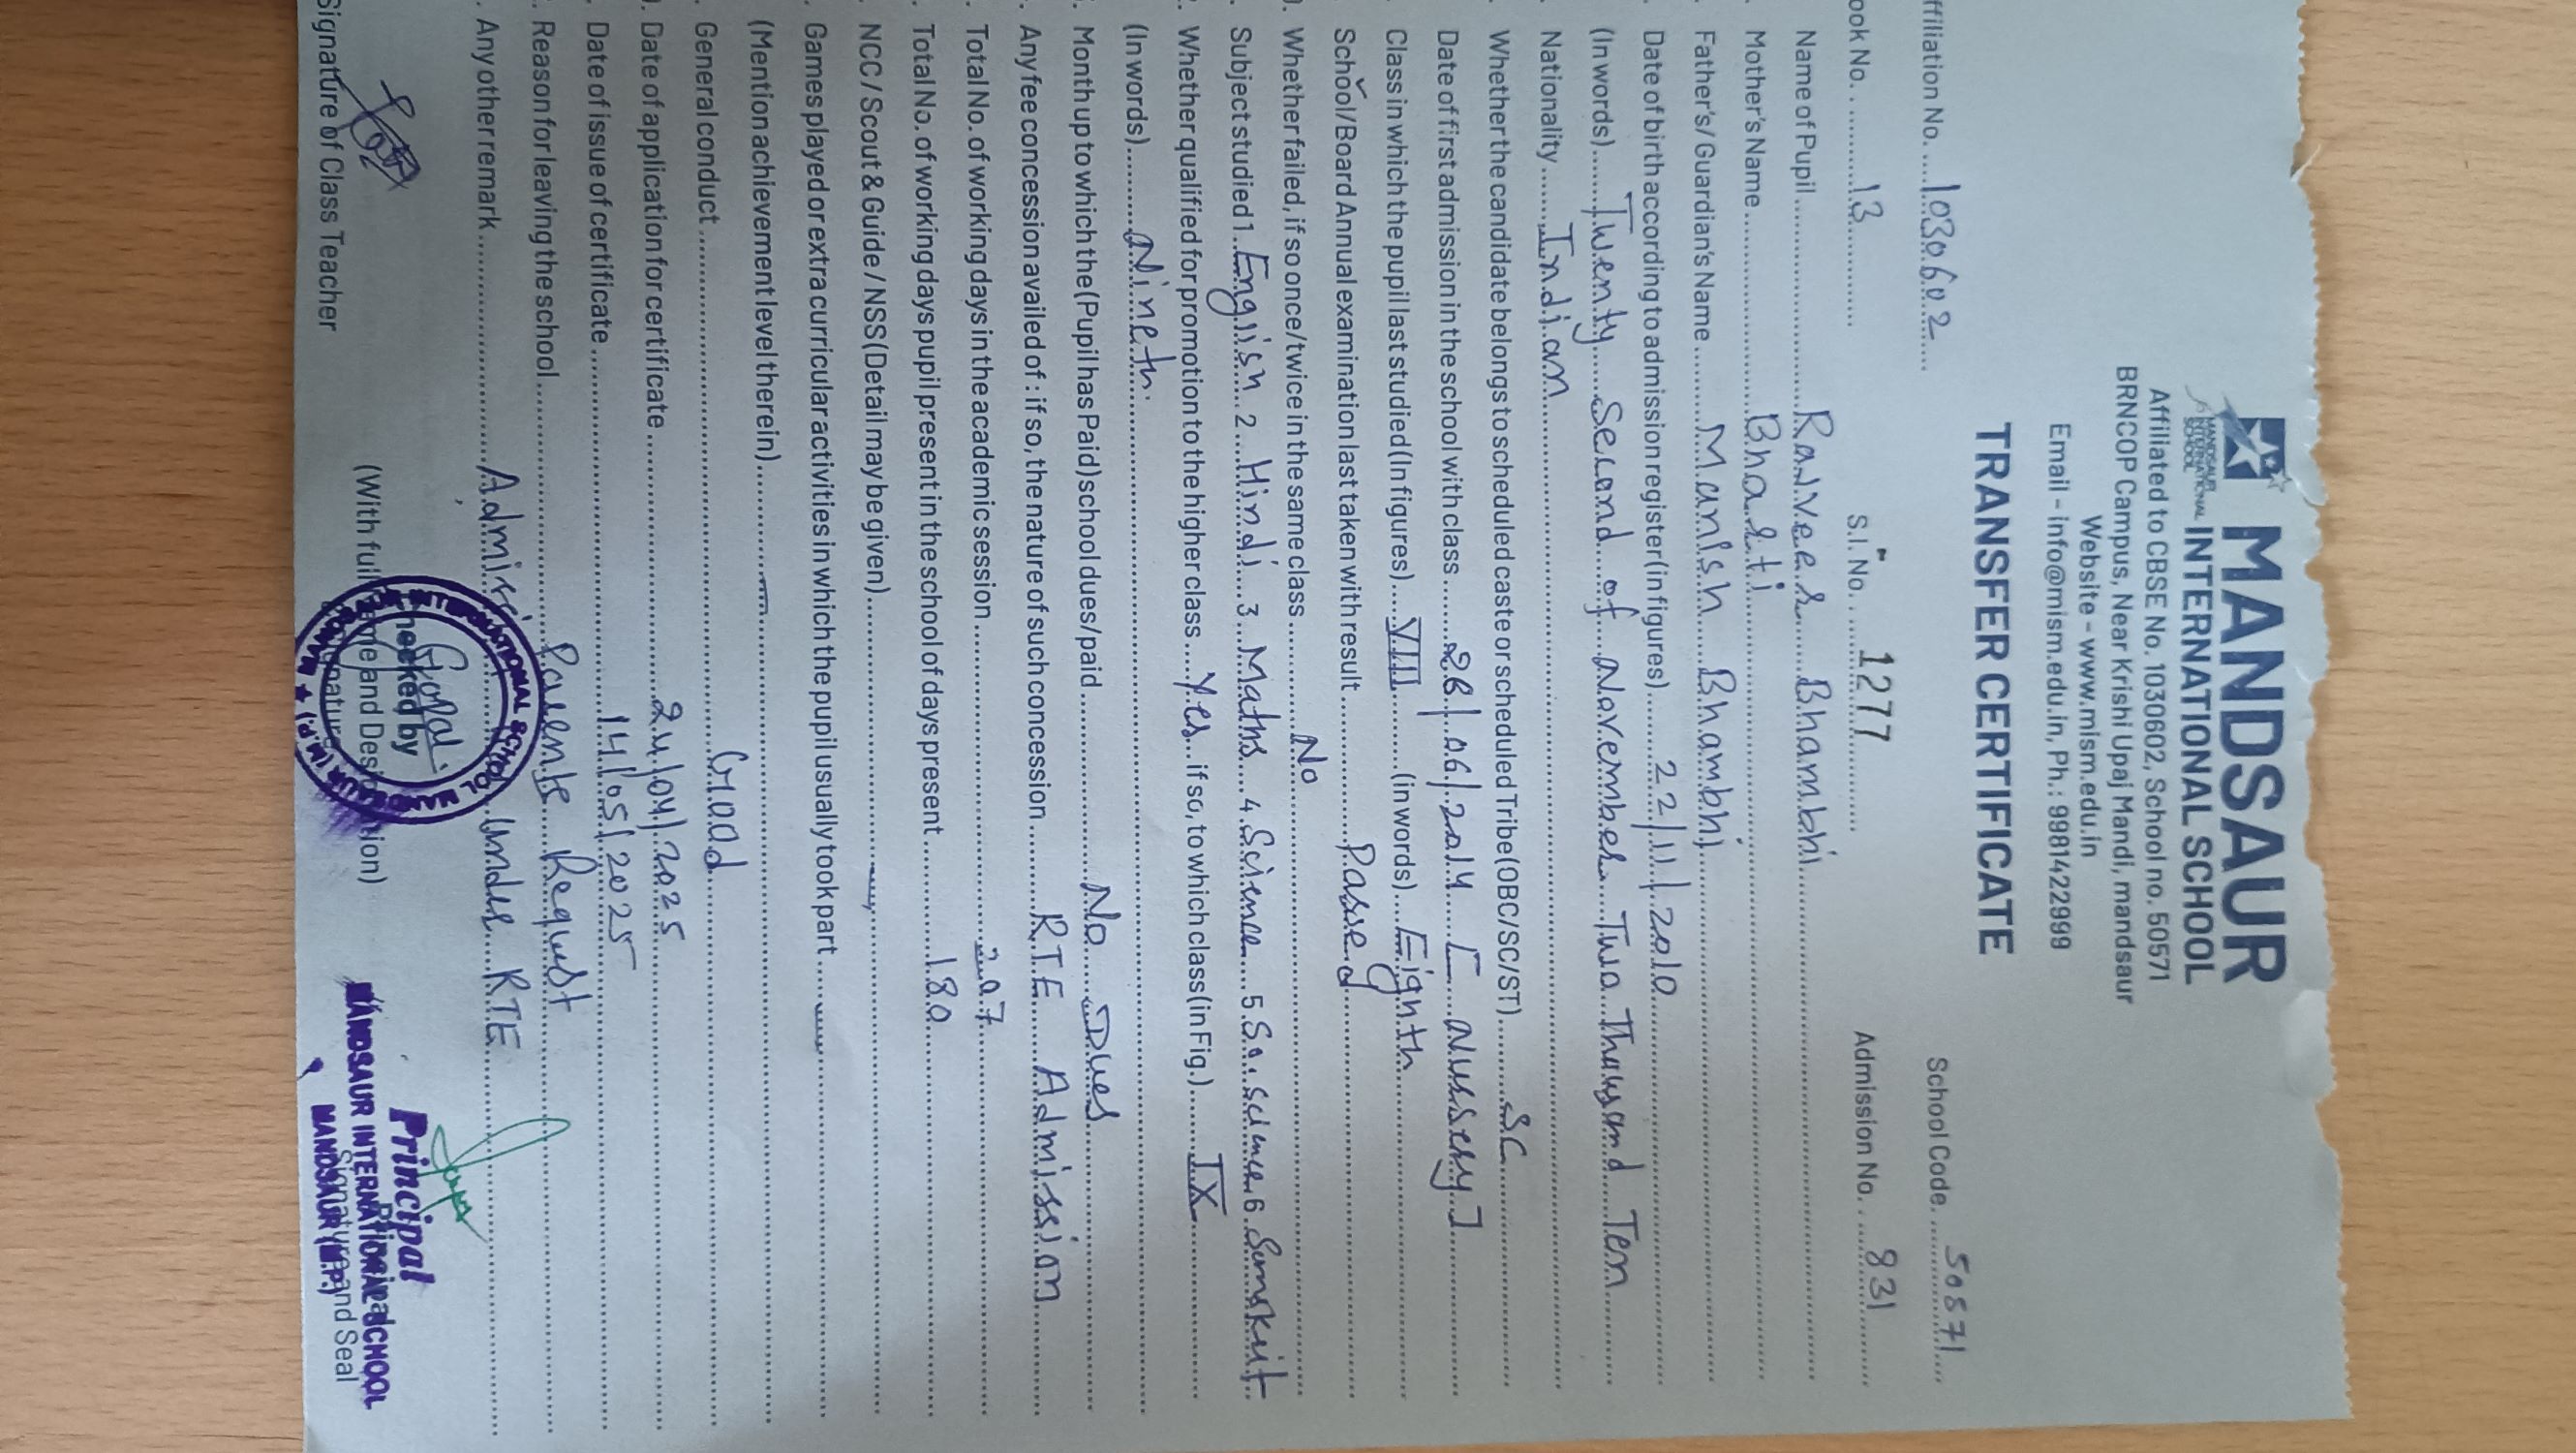 MANDSAUR
MANDSAUR INTERNATIONAL SCHOOL
INTERNATIONAL SCHOOL
Affiliated to CBSE No. 1030602, School no. 50571
BRNCOP Campus, Near Krishi Upaj Mandi, mandsaur
Website - www.mism.edu.in
Email - info@mism.edu.in, Ph.: 9981422999
TRANSFER CERTIFICATE
ffiliation No. ....1030602.... School Code. ....50571....
ook No. ....13.... S.l. No. ....1277.... Admission No. ....831....
. Name of Pupil....Rajveer Bhambhi....
. Mother's Name....Bharti....
. Father's/ Guardian's Name....Manish Bhambhi....
. Date of birth according to admission register (in figures)....22/11/2010....
(In words)....Twenty Second of November Two Thousand Ten....
. Nationality....Indian....
. Whether the candidate belongs to scheduled caste or scheduled Tribe (OBC/SC/ST)....SC....
. Date of first admission in the school with class....28/06/2014 [Nursery]....
. Class in which the pupil last studied (In figures)....VIII.... (in words)....Eighth....
School/Board Annual examination last taken with result....Passed....
0. Whether failed, if so once/twice in the same class....No....
. Subject studied 1..English.. 2..Hindi.. 3..Maths.. 4..Science.. 5.So. Science. 6.Sanskrit
. Whether qualified for promotion to the higher class....Yes.. if so, to which class (in Fig.)....IX....
(In words)....Nineth....
. Month up to which the (Pupil has Paid) school dues/paid....No Dues....
. Any fee concession availed of : if so, the nature of such concession....RTE Admission....
. Total No. of working days in the academic session....207....
. Total No. of working days pupil present in the school of days present....180....
. NCC / Scout & Guide / NSS (Detail may be given)....—....
. Games played or extra curricular activities in which the pupil usually took part....—....
(Mention achievement level therein)....—....
. General conduct....Good....
. Date of application for certificate....24/04/2025....
. Date of issue of certificate....14/05/2025....
. Reason for leaving the school....Parents Request....
. Any other remark....Under RTE....
Principal
MANDSAUR INTERNATIONAL SCHOOL
MANDSAUR (M.P.)
Signature of Class Teacher